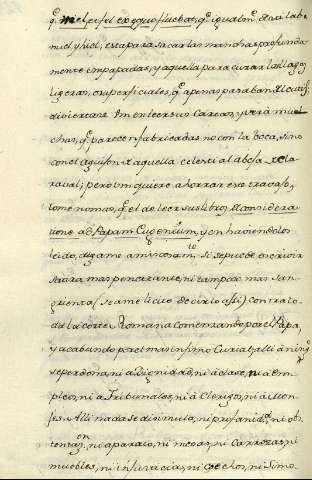 q.e mel, es fel ex equo fluebat; q.e igualm.te de su labio
miel, y hiel; esta para sacar las manchas profunda
mente impapadas, y aquella para curar las llagas
ligeras, superficiales, q.e apenas pasaban el cutis;
diviertase Vm en leer sus Cartas, y verà mu
chas, q.e parecen fabricadas, no con la boca, sino
con el aguijon de aquella celestial abeja de Cla
raval; pero Vm quiere ahorrar ese trabajo,
tome no mas, q.e el de leer sus libros de Considera
tione ad Papam Eugenium, y en haviendolos
leido, digame amicarim.to si se puede escrivir
Satira mas penetrante, ni tampoco mas san
grienta (seame licito decirlo assi) contra to
da la Corte Romana comenzando por el Papa,
y acabando por el mas infimo Curial; alli à ning.o
se perdona, ni à Dignidad, ni à clase, ni à em
pleo, ni à Tribunales, ni à Clerigos, ni à Mon
jes. Alli nada se disimula, ni profanid.d, ni os
tentaz.on, ni aparato, ni mesas, ni Carrozas, ni
muebles, ni injusticias, ni cohechos, ni Simo